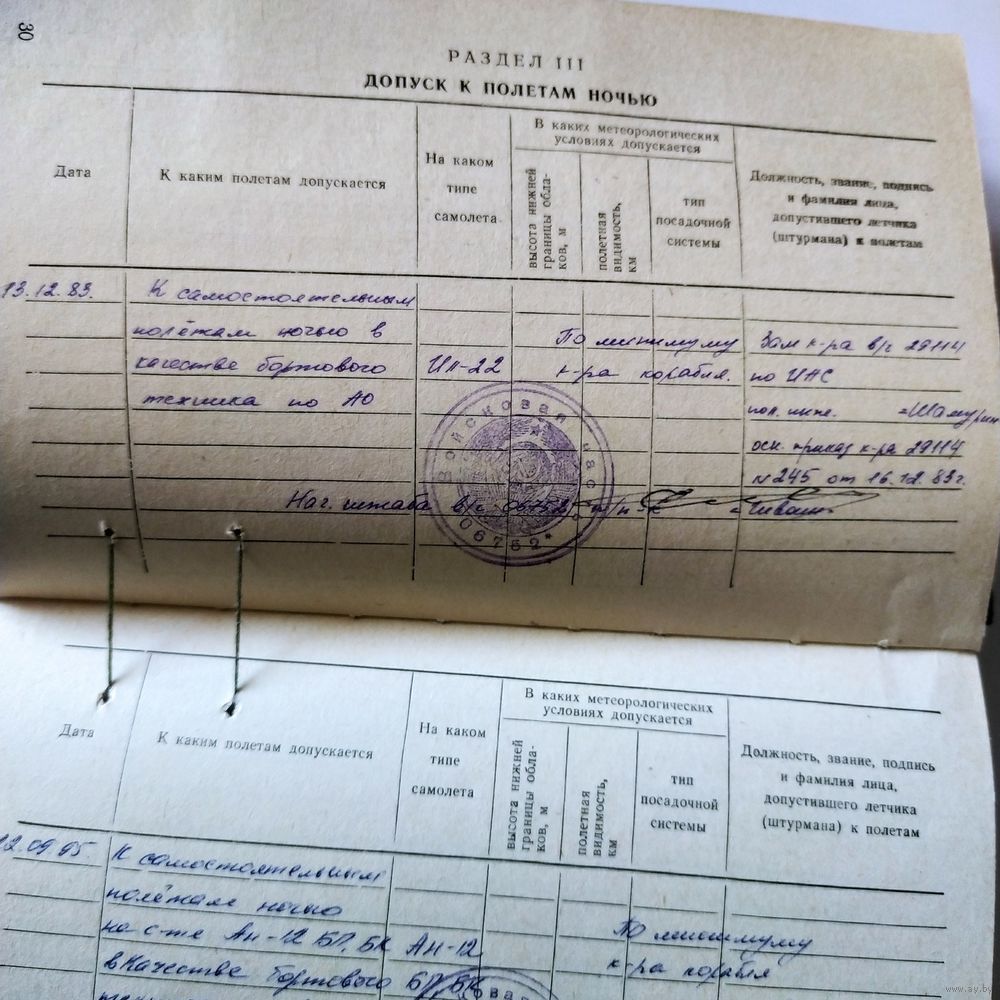 30
РАЗДЕЛ III
ДОПУСК К ПОЛЕТАМ НОЧЬЮ
Дата
К каким полетам допускается
На каком
типе
самолета
В каких метеорологических
условиях допускается
высота нижней
границы обла-
ков, м
полетная
видимость,
км
тип
посадочной
системы
Должность, звание, подпись
и фамилия лица,
допустившего летчика
(штурмана) к полетам
13.12.83.
К самостоятельным
полётам ночью в
качестве бортового
техника по АО
Ил-22
По минимуму
к-ра корабля.
Зам к-ра в/ч 29114
по ИАС
осн. приказ к-ра 29114
№245 от 16.12.83г.
Нач. штаба в/ч 06752 п/п-к
Войсковая часть
06752*
Дата
К каким полетам допускается
На каком
типе
самолета
В каких метеорологических
условиях допускается
высота нижней
границы обла-
ков, м
полетная
видимость,
км
тип
посадочной
системы
Должность, звание, подпись
и фамилия лица,
допустившего летчика
(штурмана) к полетам
12.09.95.
К самостоятельным
полётам ночью
на с-те Ан-12 БП, БК
в качестве бортового
Ан-12
БП, БК
По минимуму
к-ра корабля
www.ay.by